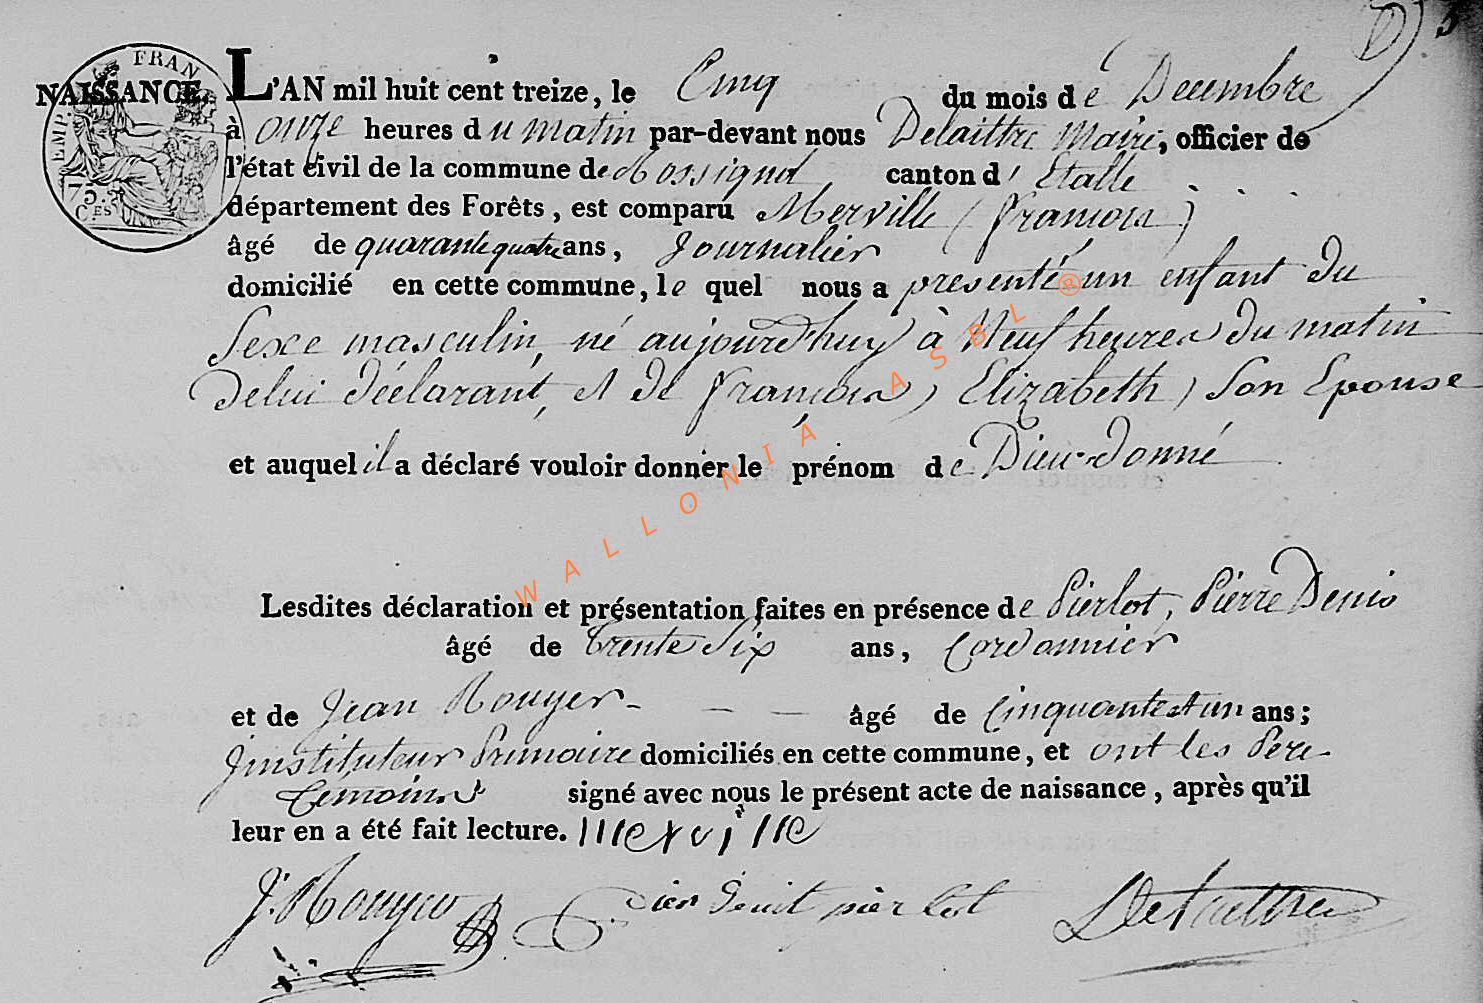 NAISSANCE.
EMP. FRAN
75. CES
L'AN mil huit cent treize, le Cinq du mois de Decembre
à onze heures du matin par-devant nous Delaittre Maire, officier de
l'état civil de la commune de Rossignol canton d'Etalle
département des Forêts, est comparu Merville (françois)
âgé de quarante quatre ans, Journalier
domicilié en cette commune, le quel nous a presenté un enfant du
Sexe masculin, né aujourdhuy à Neuf heures du matin
de lui déclarant, et de françois) Elizabeth) Son Epouse
et auquel il a déclaré vouloir donner le prénom de Dieu-donné
Lesdites déclaration et présentation faites en présence de Pierlot, Pierre Denis
âgé de trente Six ans, Cordonnier
et de Jean Rouyer - - - âgé de Cinquante et un ans;
Jnstituteur Primaire domiciliés en cette commune, et ont les Pere
temoins signé avec nous le présent acte de naissance, après qu'il
leur en a été fait lecture. Merville
J. Rouyer pier lot Delaittre
WALLONIA ASBL ®